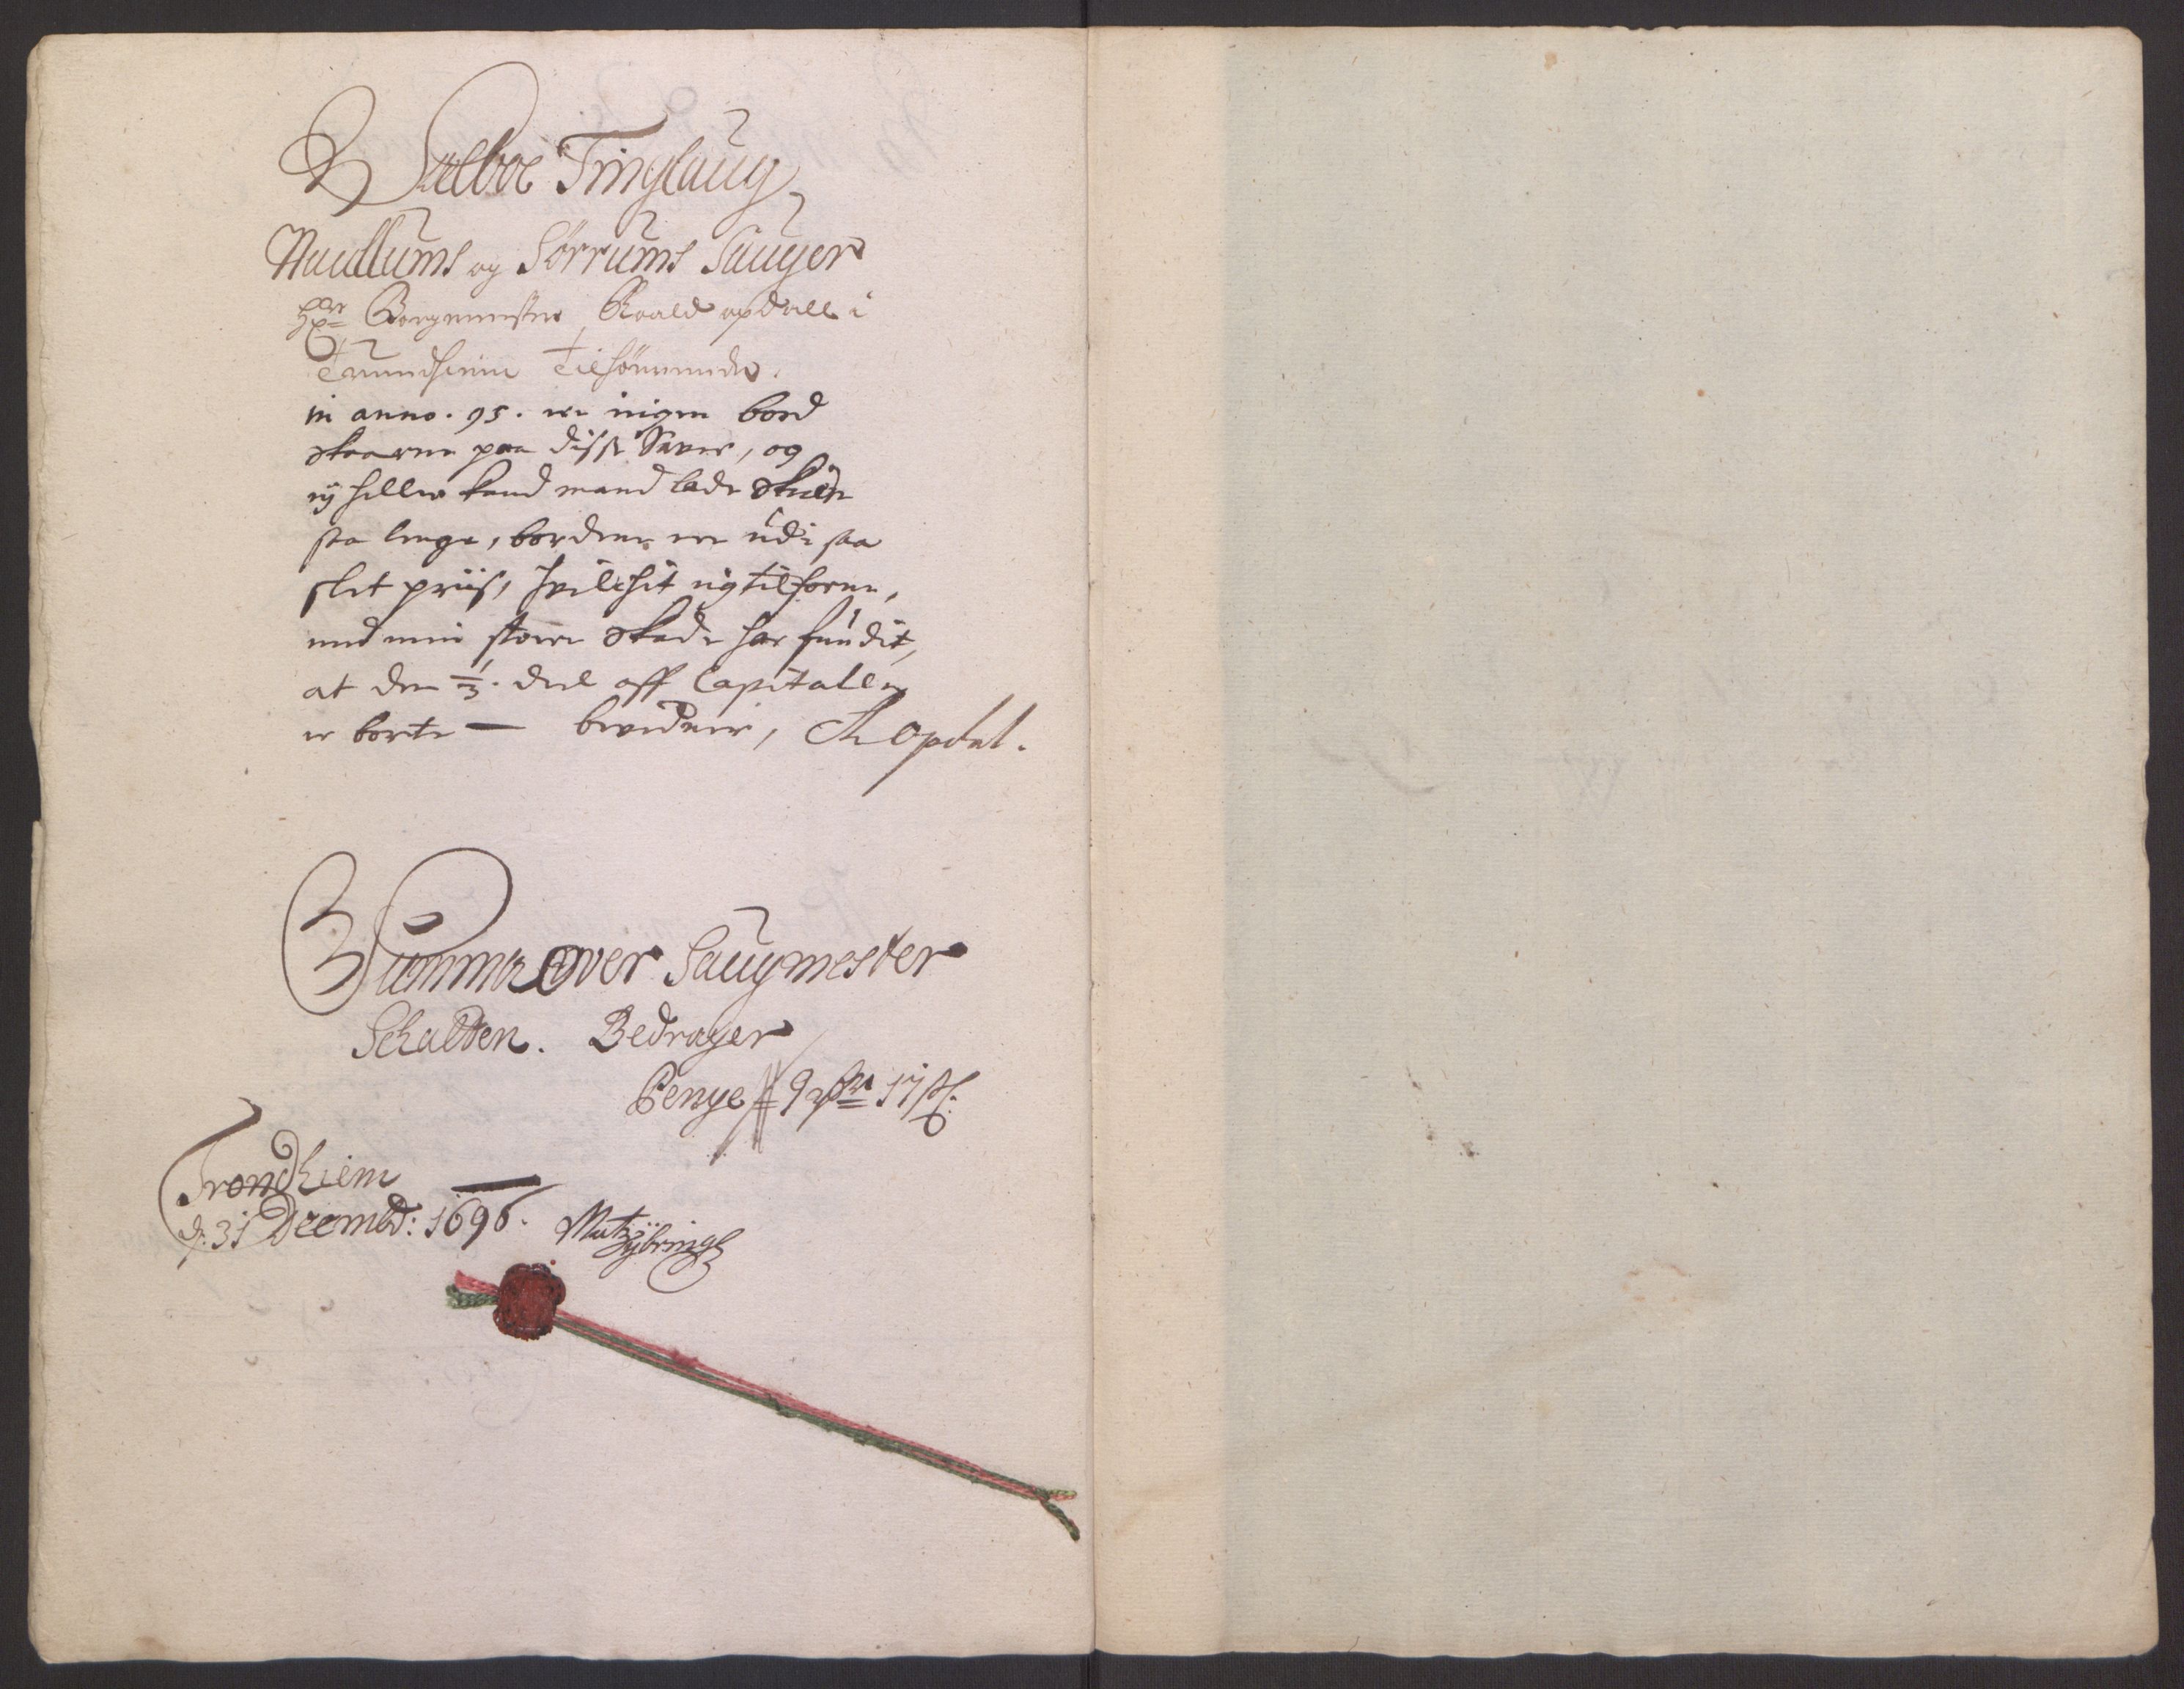 Selboe Tinglaug
og Sørrums Sauger
Hr Borgemester Roald opdall i
Trundhiem Tilhørrende.
in anno. 95. er ingen bord
skaaren paa disse Saver, og
ey heller kand mand lade skiære
saa lenge, bordene er udi saa
slet priis, hvilchit ieg tilforne,
med min store skade har fundit,
at den 1/3. deel aff Capitallen
er borte — bevidner, R Opdal.
Summa over Saugmester
Schatten. Bedrager
Penge 92 1/2
Trondhiem
d: 31 Decembr: 1696.